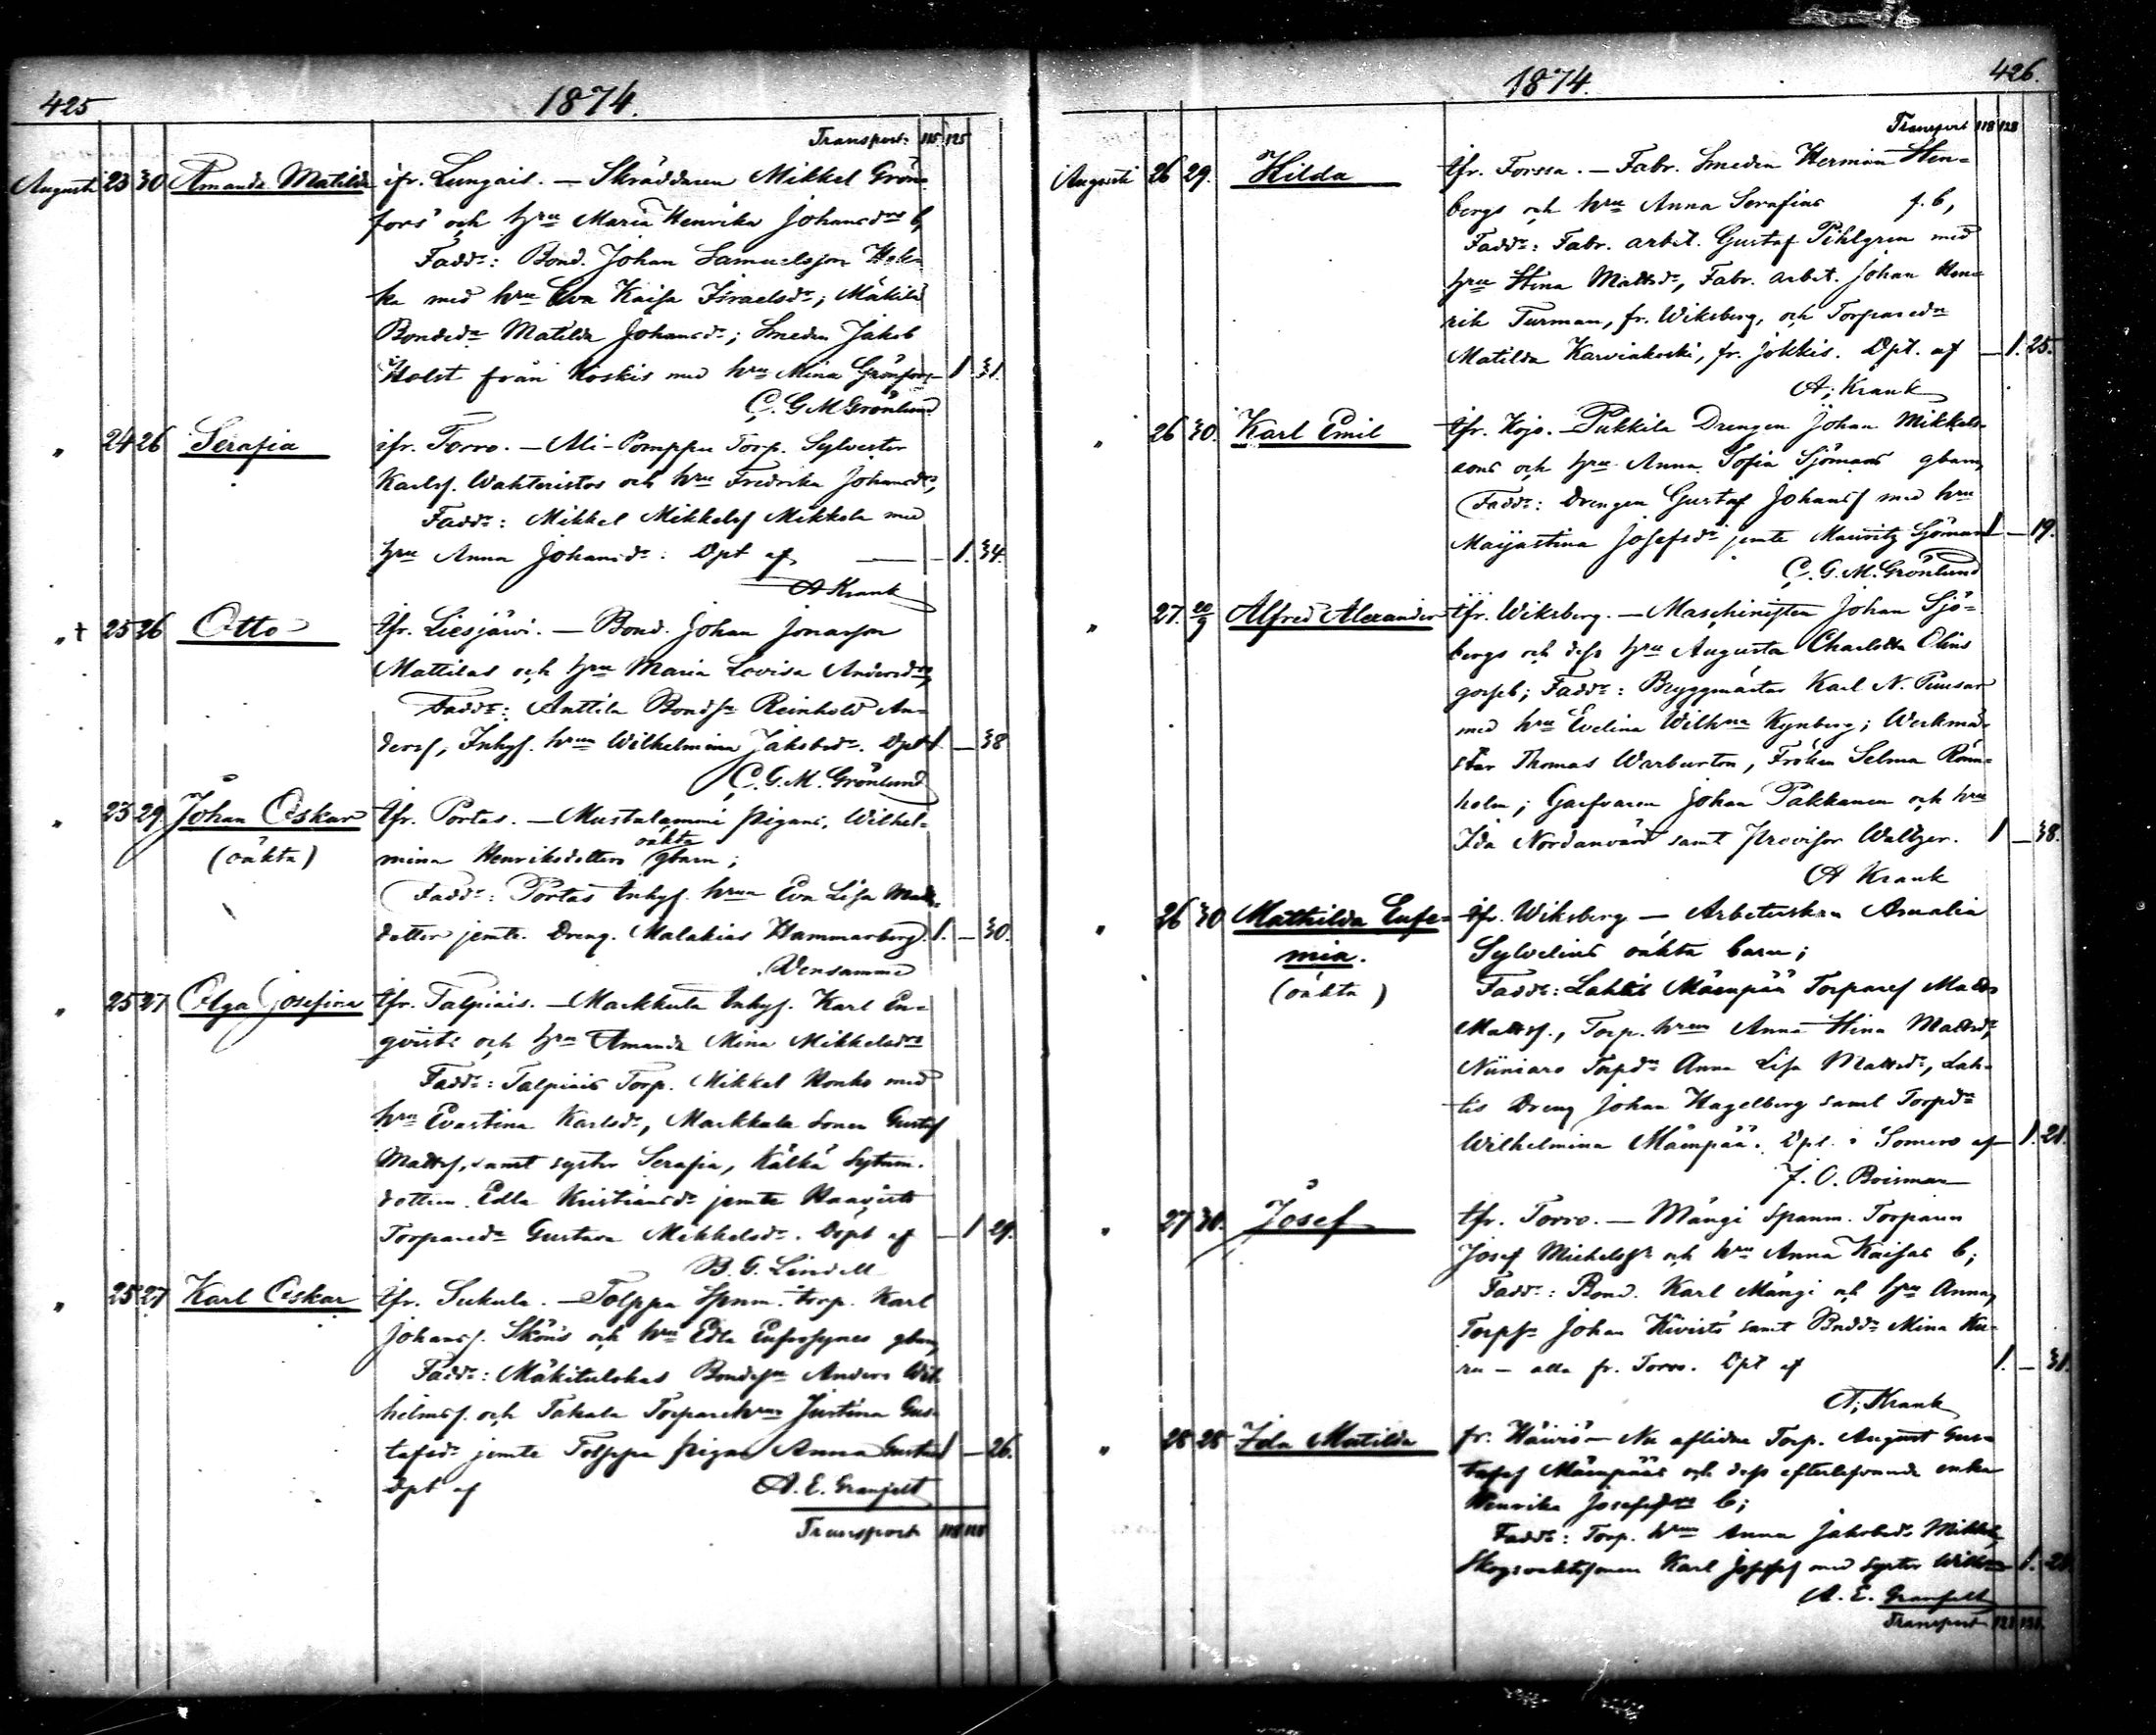 425
1874.
Transport 115 125
Augusti 23 30 Amanda Matilda ifr. Lungais. — Skräddaren Mikkel Grön-
fors' och hru Maria Henrika Johansdrs b,
Faddr: Bond. Johan Samuelsson Hek-
ka med hru Eva Kaisa Israelsdr; Mäkilä
Bondedr Matilda Johansdr; Smeden Jakob
Holst från Koskis med hru Mina Grönfors 1 31.
C. G. M. Grönlund
" 24 26 Serafia ifr. Torro. — Ali-Pomppu Torp. Sylvester
Karlss. Wahteristos och hru Fredrika Johansdrs,
Faddr: Mikkel Mikkelss Mikkola med
hru Anna Johansdr: Dpt af — 1. 34.
A Krank
" + 25 26 Otto tfr. Liesjärvi. — Bond. Johan Jonasson
Mattilas och hru Maria Lovisa Andersdrs,
Faddr: Anttila Bondsn Reinhold An-
derss, Inhys. hrun Wilhelmina Jakobsdr. Dpt 1 — 38
C. G. M. Grönlund
" 23 29 Johan Oskar tfr. Portas. — Mustalammi pigans, Wilhel-
(oäkta) mina Henriksdotters oäkta gbarn;
Faddr: Portas Inhys. hrun Eva Lisa Matts-
dotter jemte Dreng. Malakias Hammarberg. 1. — 30.
Densamme
" 25 27 Olga Josefina tfr. Talpiais. — Markkula Inhys. Karl En-
qvists och hru Amanda Mina Mikkelsdrs
Faddr: Talpiais Torp. Mikkel Honko med
hru Evastina Karlsdr, Markkula sonen Gustaf
Mattss, samt syster Serafia, Kälkä Sytnm.
dottern Edla Kristiansdr jemte Haavisto
Torparedr Gustava Mikkelsdr. Döpt af — 1 29.
B. G. Lindell
" 25 27 Karl Oskar tfr. Sukula. — Tolppa Spnm. torp. Karl
Johanss. Sköns och hru Edla Eufrosynes gbarn,
Faddr: Mäkitulokas Bondesn Anders Wil-
helmss. och Takala Torparehrun Justina Gus-
tafsdr jemte Tolppa pigan Anna Gustava 1 — 26.
Dpt af A. E. Granfelt
Transport 118 128
1874.
426.
Transport 118 128
Augusti 26 29. Hilda tfr. Forssa. — Fabr. Smeden Herman Sten-
bergs och hru Anna Serafias f. b,
Faddr: Fabr. arbet. Gustaf Pihlgren med
hru Stina Mattsdr, Fabr. arbet. Johan Hen-
rik Turman, fr. Wiksberg, och Torparedr
Matilda Karviakoski, fr. Jokkis. Dpt. af — 1. 25.
A. Krank
" 26 30. Karl Emil tfr. Kojo. — Pukkila Drengen Johan Mikkels-
sons och hru Anna Sofia Sjömans gbarn,
Faddr: Drengen Gustaf Johanss med hru
Maijastina Josefsdr jemte Mauritz Sjöman 1 — 19.
C. G. M. Grönlund
" 27. 20/9 Alfred Alexander tfr. Wiksberg. — Maschinisten Johan Sjö-
bergs och dess hru Augusta Charlotta Olins
gosseb; Faddr: Byggmästar Karl N. Puusar
med hru Evelina Wilhna Kynberg; Werkmä-
star Thomas Warburton, Fröken Selma Rönn-
holm; Garfvaren Johan Pakkanen och hru
Ida Nordanvärd samt Provisor Waltzer. 1 — 38.
A Krank
" 26 30 Mathilda Eufe- tfr. Wiksberg — Arbeterskan Amalia
mia. Sylvelius oäkta barn;
(oäkta) Faddr: Lahtis Mäenpää Torpares Matts
Mattss., Torp. hrun Anna Stina Mattsdr,
Niiniaro Torpdr Anna Lisa Mattsdr, Lah-
tis Dreng Johan Hagelberg samt Torpdr
Wilhelmina Mäenpää. Dpt. i Somero af — 1. 21.
J. O. Boisman
" 27 30. Josef tfr. Torro. — Mängi Spanm. Torparen
Josef Michelss och hru Anna Kaisas b;
Faddr: Bond. Karl Mängi och hru Anna,
Torpsn Johan Kivistö samt Bndedr Mina Ku-
ru — alla fr. Torro. Dpt af 1. — 31.
A. Krank
" 28 28 Ida Matilda fr. Häiviö — Nu aflidne Torp. August Gus-
tafss Mäenpääs och dess efterlefvande enka
Henrika Josefsdrs b;
Faddr: Torp. hrun Anna Jakobsdr Mikkola,
Skogsvaktssonen Karl Josefss med syster Wilhna 1. 21
A. E. Granfelt
Transport 121 131.